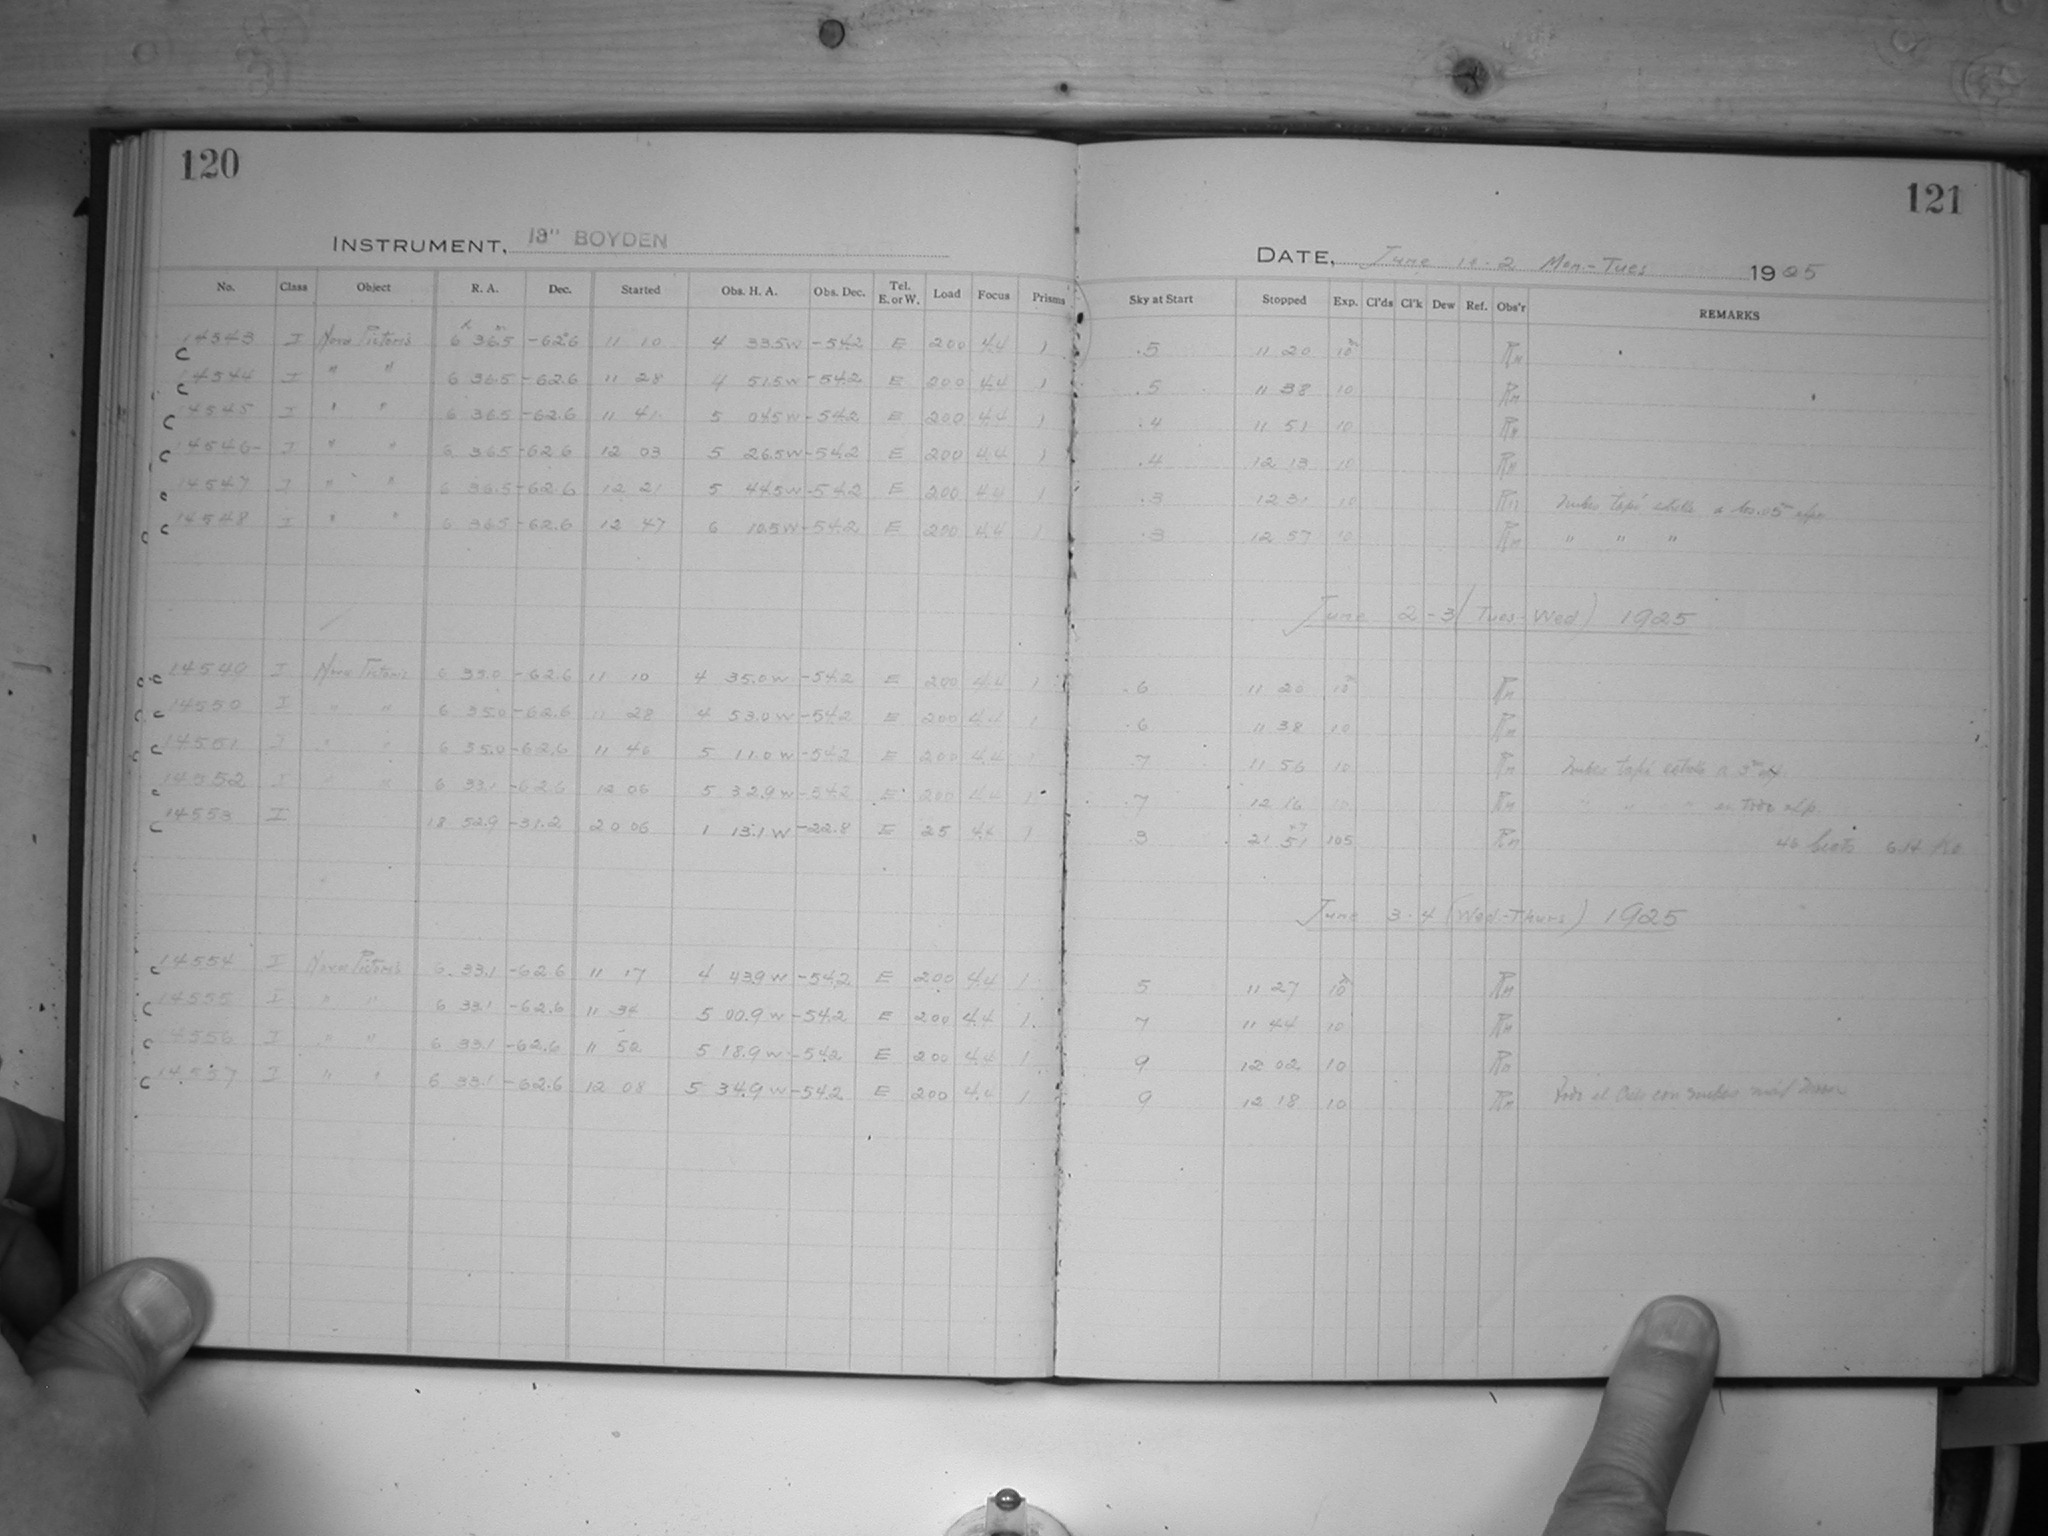 120
INSTRUMENT, 13" BOYDEN
No. Class Object R. A. Dec. Started Obs. H. A. Obs. Dec. Tel. E. or W. Load Focus Prisms
C 14543 I Nova Pictoris 6h 36.5m -62.6° 11 10 4 33.5 W -54.2 E 200 4.4 1
C 14544 I " " 6 36.5 -62.6 11 28 4 51.5 W -54.2 E 200 4.4 1
C 14545 I " " 6 36.5 -62.6 11 41 5 04.5 W -54.2 E 200 4.4 1
C 14546 I " " 6 36.5 -62.6 12 03 5 26.5 W -54.2 E 200 4.4 1
C 14547 I " " 6 36.5 -62.6 12 21 5 44.5 W -54.2 E 200 4.4 1
C 14548 I " " 6 36.5 -62.6 12 47 6 10.5 W -54.2 E 200 4.4 1
C 14549 I Nova Pictoris 6 35.0 -62.6 11 10 4 35.0 W -54.2 E 200 4.4 1
C 14550 I " " 6 35.0 -62.6 11 28 4 53.0 W -54.2 E 200 4.4 1
C 14551 I " " 6 35.0 -62.6 11 46 5 11.0 W -54.2 E 200 4.4 1
C 14552 I " " 6 33.1 -62.6 12 06 5 32.9 W -54.2 E 200 4.4 1
C 14553 I 18 52.9 -31.2 20 06 1 13.1 W -22.8 E 25 4.4 1
C 14554 I Nova Pictoris 6 33.1 -62.6 11 17 4 43.9 W -54.2 E 200 4.4 1
C 14555 I " " 6 33.1 -62.6 11 34 5 00.9 W -54.2 E 200 4.4 1
C 14556 I " " 6 33.1 -62.6 11 52 5 18.9 W -54.2 E 200 4.4 1
C 14557 I " " 6 33.1 -62.6 12 08 5 34.9 W -54.2 E 200 4.4 1
121
DATE, June 1-2 Mon-Tues 1925
Sky at Start Stopped Exp. Cl'ds Cl'k Dew Ref. Obs'r REMARKS
.5 11 20 10m
.5 11 38 10
.4 11 51 10
.4 12 13 10
.3 12 31 10 Nubes tapó
.3 12 57 10 " " "
June 2-3 (Tues-Wed) 1925
.6 11 20 10m
.6 11 38 10
.7 11 56 10 Nubes tapó
.7 12 16 10 " " " en todo
.3 21 51 105
June 3-4 (Wed.-Thurs) 1925
5 11 27 10m
7 11 44 10
9 12 02 10
9 12 18 10 Todo el Cielo con nubes